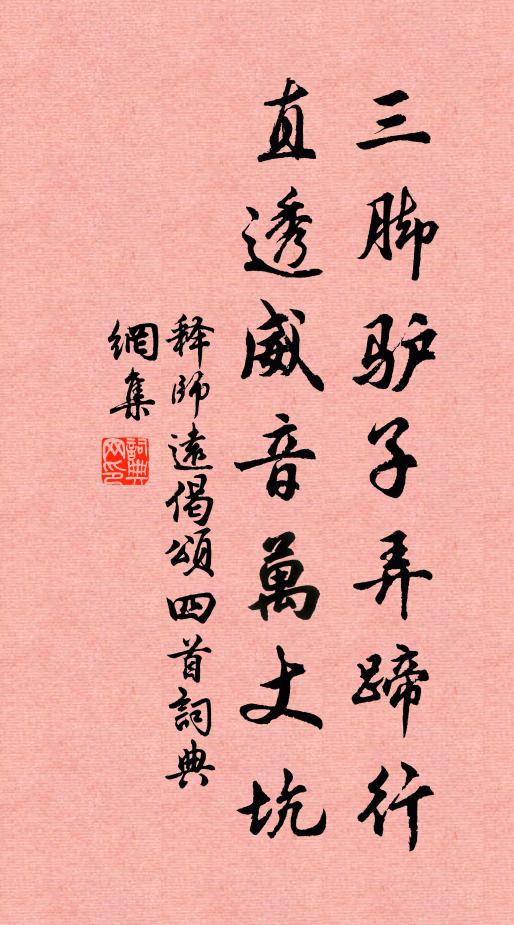 三脚驴子弄蹄行
直透威音萬丈坑
释師遠偈頌四首詞典
網集
詞典網印